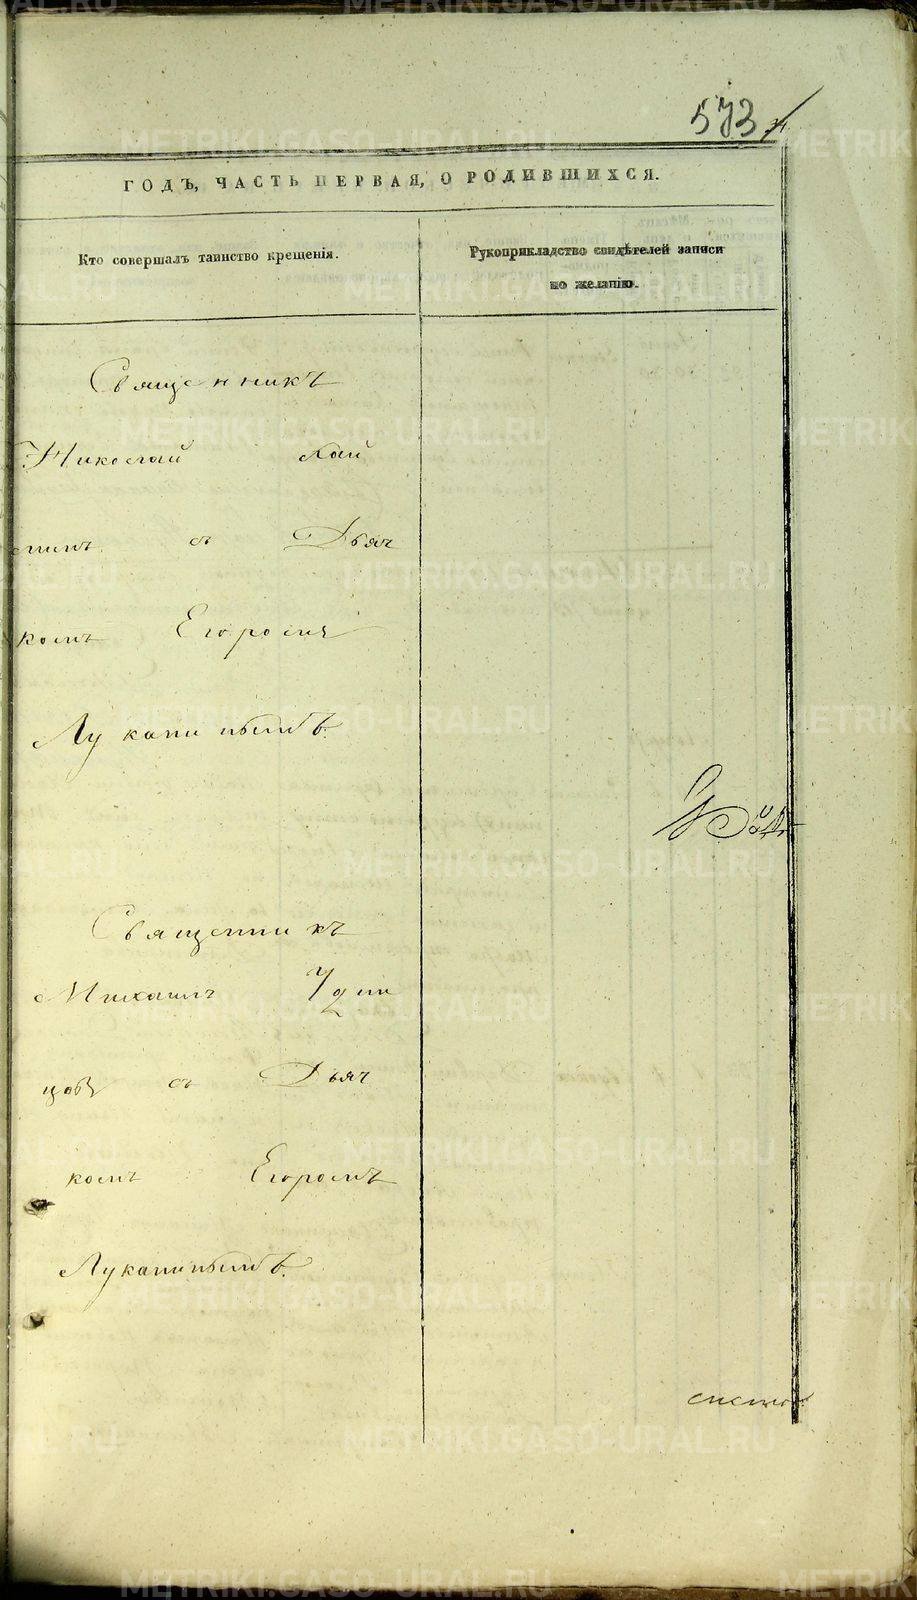 573
ГОДЪ, ЧАСТЬ ПЕРВАЯ, О РОДИВШИХСЯ.
Кто совершалъ таинство крещенія.
Рукоприкладство свидѣтелей записи
по желанію.
Священникъ
Николай
съ Дьяч
комъ Егоромъ
Луканинымъ.
Священникъ
Михаилъ Удин
цовъ съ Дьяч
комъ Егоромъ
Луканинымъ.
METRIKI.GASO-URAL.RU